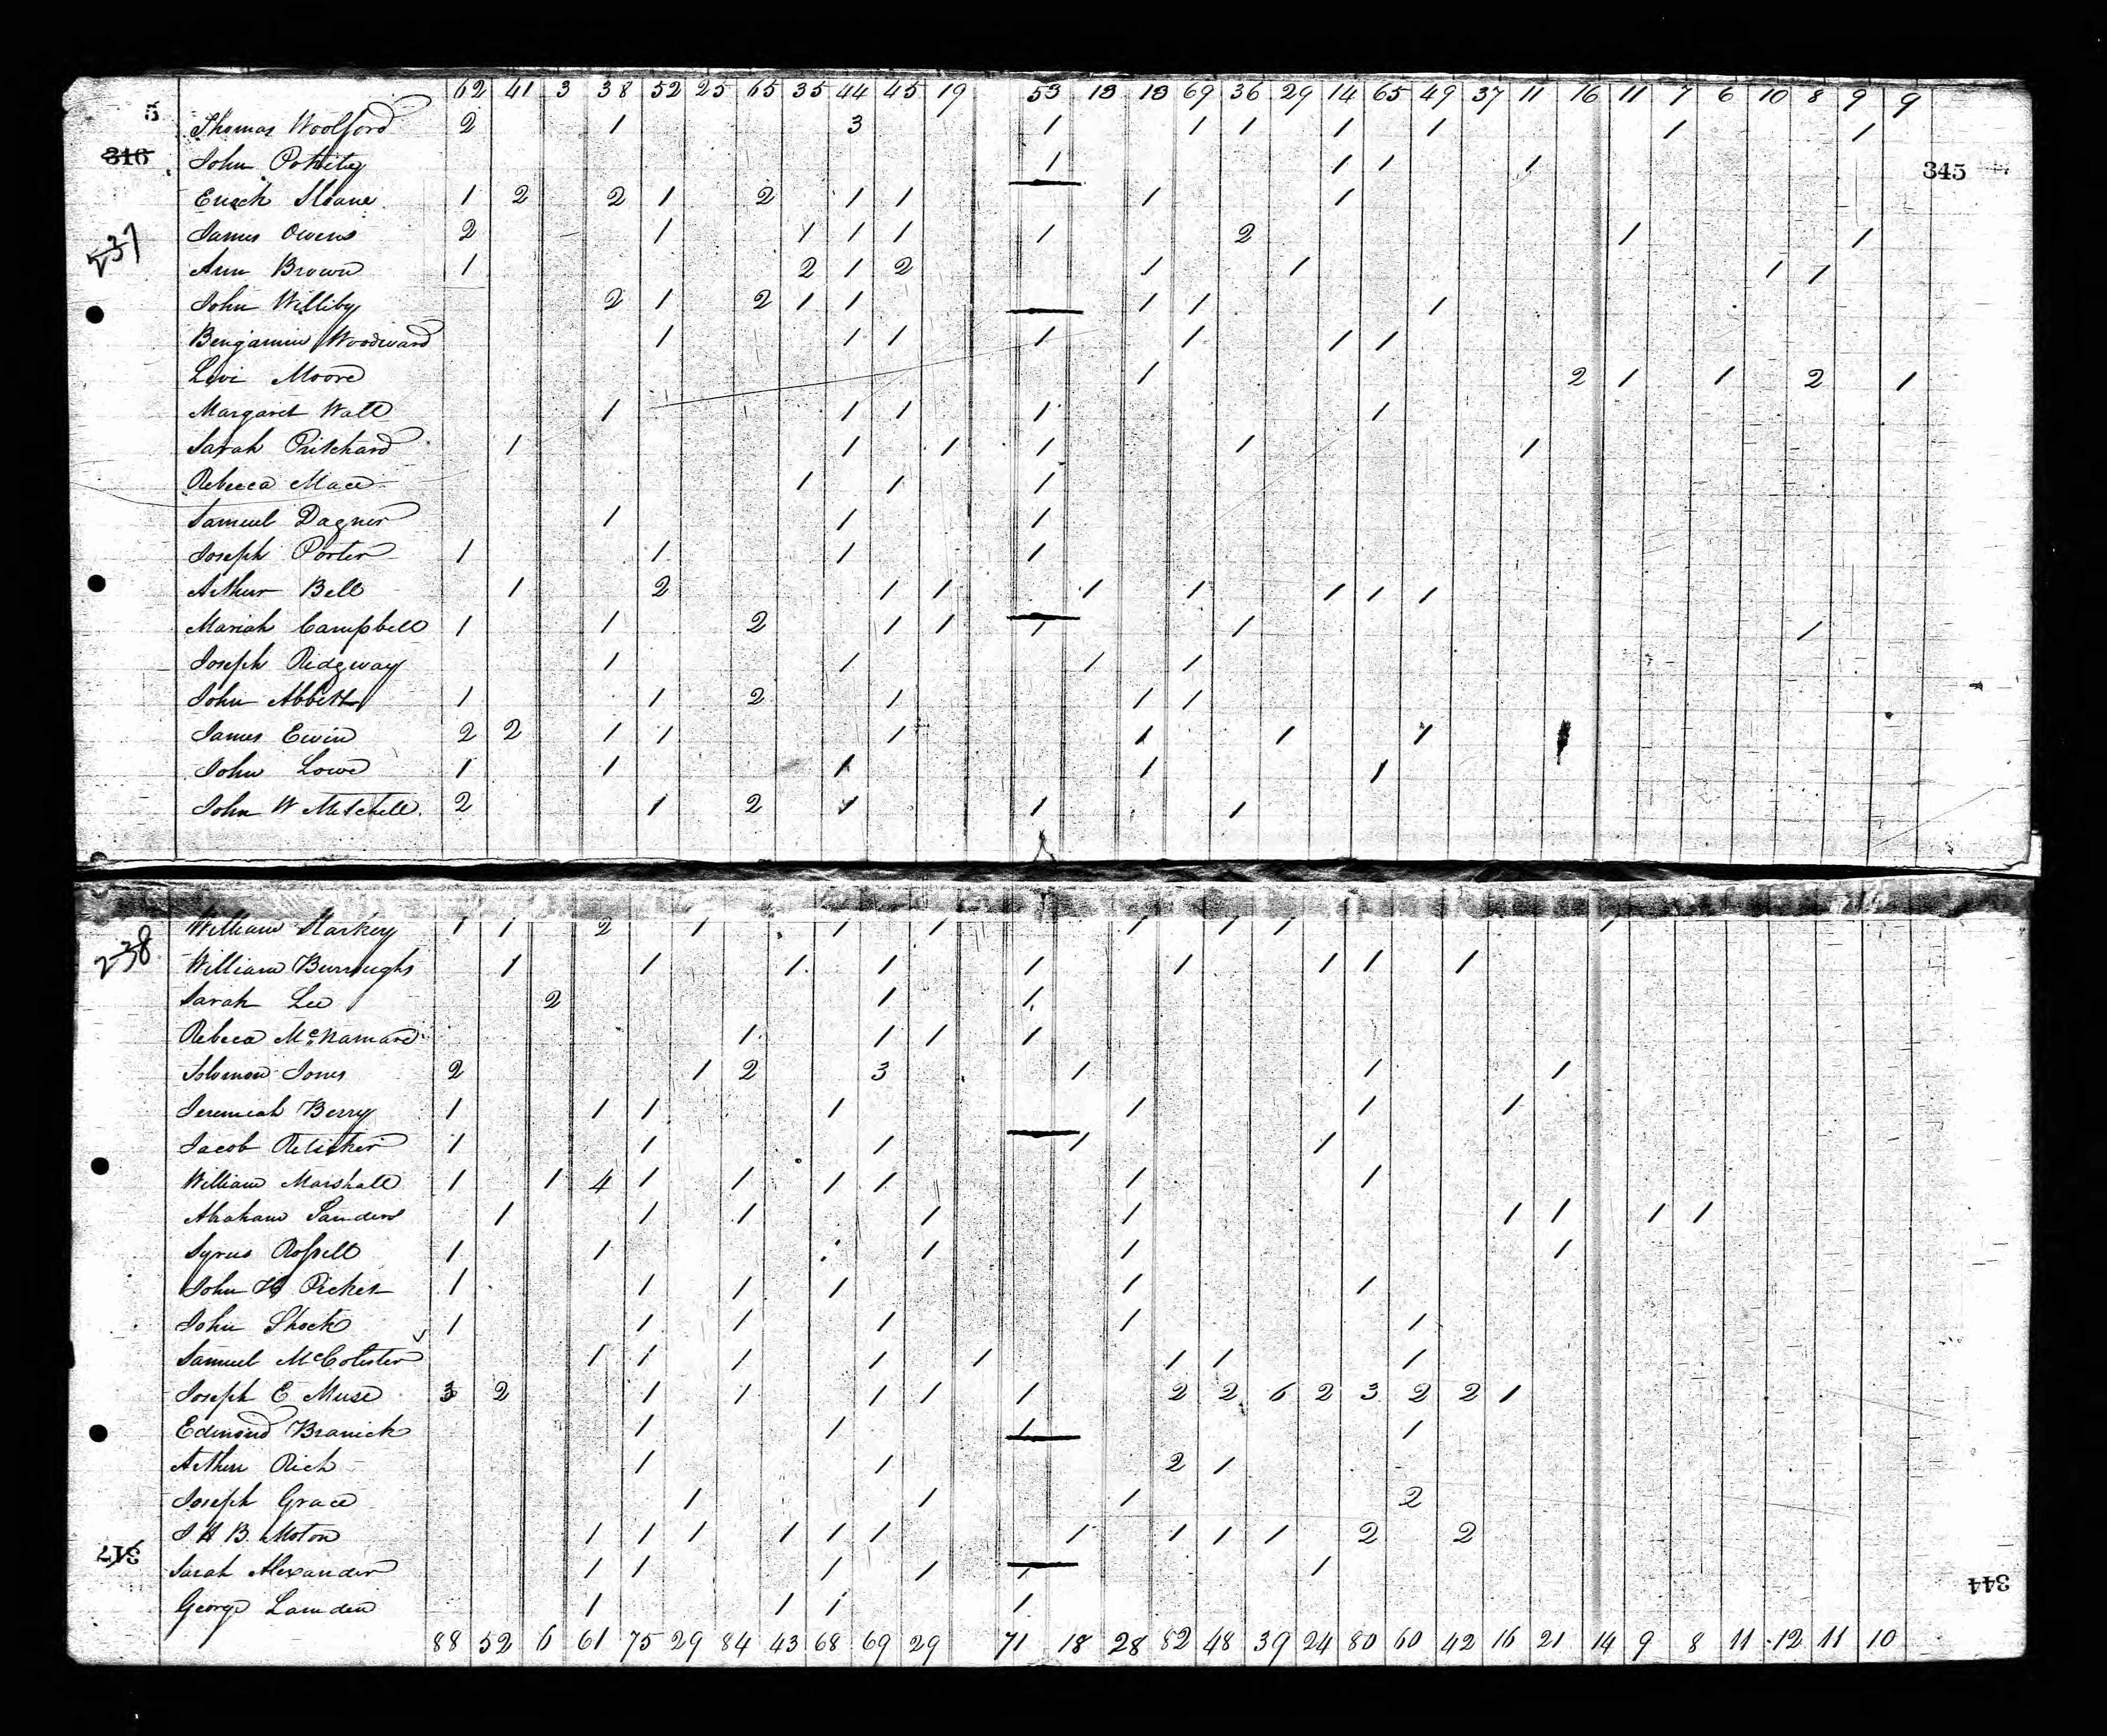 62 41 3 38 52 25 65 35 44 45 19 53 13 13 69 36 29 14 65 49 37 11 16 11 7 6 10 8 9 9
5
Thomas Woolford 2 1 3 1 1 1 1 1 1 1
316 John 1 1 1 1 345
Enoch Sloane 1 2 2 1 2 1 1 1 1
237
James Owens 2 1 1 1 1 1 2 1 1
Ann Brown 1 2 1 2 1 1 1 1
John Williby 2 1 2 1 1 1 1 1
Benjamin Woodward 1 1 1 1 1 1 1
Levi Moore 1 2 1 1 2 1
Margaret Wall 1 1 1 1 1
Sarah Pritchard 1 1 1 1 1 1
Rebecca Mace 1 1 1
Samuel Dagner 1 1 1
Joseph Porter 1 1 1 1
Arthur Bell 1 2 1 1 1 1 1 1 1
Mariah Campbell 1 1 2 1 1 1 1 1
Joseph Ridgway 1 1 1 1
John Abbett 1 1 2 1 1 1
James Ewin 2 2 1 1 1 1 1 1
John Lowe 1 1 1 1 1
John W Mitchell 2 1 2 1 1 1
William 1 1 2 1 1 1 1 1 1 1
238
William Burroughs 1 1 1 1 1 1 1 1 1
Sarah Lee 2 1 1
Rebeca McNamara 1 1 1 1
Solomon Jones 2 1 2 3 1 1 1
Jeremiah Berry 1 1 1 1 1 1 1
Jacob 1 1 1 1 1
William Marshall 1 1 4 1 1 1 1 1 1
Abraham Sanders 1 1 1 1 1 1 1 1 1
Syrus Rossell 1 1 1 1 1
John H Picket 1 1 1 1 1 1
John Shock 1 1 1 1 1 1
Samuel McColister 1 1 1 1 1 1 1 1
Joseph E Muse 3 2 1 1 1 1 1 2 2 6 2 3 2 2 1
Edmond Branick 1 1 1 1
Arthur Rich 1 1 2 1
Joseph Grace 1 1 1 2
J H B Moton 1 1 1 1 1 1 1 1 1 1 2 2
317
Sarah Alexander 1 1 1 1 1 1
344
George Lamden 1 1 1 1
88 52 6 61 75 29 84 43 68 69 29 71 18 28 82 48 39 24 80 60 42 16 21 14 9 8 11 12 11 10